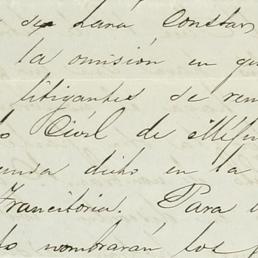 se hará constar
la omisión en qu
litigantes se rem
Civil de Méji
dicho en la
Transitoria. Para
nombrarán los